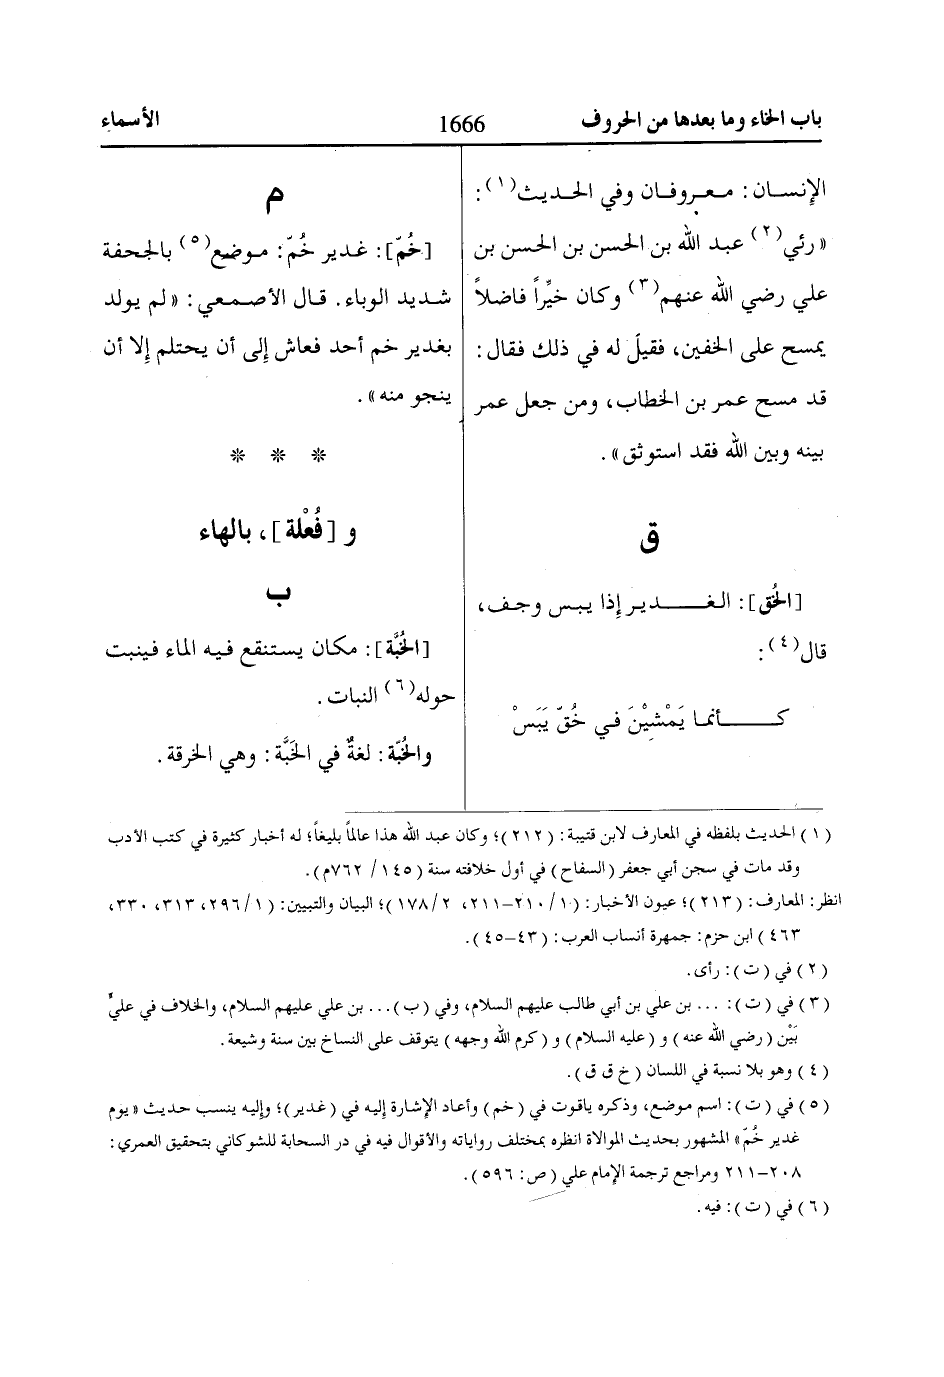 باب الخاء وما بعدها من الحروف
1666
الأسماء
الإنسان: معروفان وفي الحديث(١):
«رئي(٢) عبد الله بن الحسن بن الحسن بن
علي رضي الله عنهم(٣) وكان خيِّراً فاضلاً
يمسح على الخفين، فقيلَ له في ذلك فقال:
قد مسح عمر بن الخطاب، ومن جعل عمر
بينه وبين الله فقد استوثق».
ق
[الخُق]: الغدير إِذا يبس وجف،
قال(٤):
كأنما يَمْشيْنَ في خُقّ يَبَسْ
م
[خُمّ]: غدير خُمّ: موضع(٥) بالجحفة
شديد الوباء. قال الأصمعي: «لم يولد
بغدير خم أحد فعاش إِلى أن يحتلم إِلا أن
ينجو منه».
* * *
و [فُعْلة]، بالهاء
ب
[الخُبَّة]: مكان يستنقع فيه الماء فينبت
حوله(٦) النبات.
والخُبّة: لغةٌ في الخَبَّة: وهي الخرقة.
(١) الحديث بلفظه في المعارف لابن قتيبة: (٢١٢)؛ وكان عبد الله هذا عالماً بليغاً؛ له أخبار كثيرة في كتب الأدب
وقد مات في سجن أبي جعفر (السفاح) في أول خلافته سنة (١٤٥/ ٧٦٢م).
انظر: المعارف: (٢١٣)؛ عيون الأخبار: (١/ ٢١٠-٢١١، ٢/ ١٧٨)؛ البيان والتبيين: (١/ ٢٩٦، ٣١٣، ٣٣٠،
٤٦٣) ابن حزم: جمهرة أنساب العرب: (٤٣-٤٥).
(٢) في (ت): رأى.
(٣) في (ت): ... بن علي بن أبي طالب عليهم السلام، وفي (ب)... بن علي عليهم السلام، والخلاف في عليٍّ
بَيْن (رضي الله عنه) و (عليه السلام) و (كرم الله وجهه) يتوقف على النساخ بين سنة وشيعة.
(٤) وهو بلا نسبة في اللسان (خ ق ق).
(٥) في (ت): اسم موضع، وذكره ياقوت في (خم) وأعاد الإشارة إليه في (غدير)؛ وإليه ينسب حديث «يوم
غدير خُمّ» المشهور بحديث الموالاة انظره بمختلف رواياته والأقوال فيه في در السحابة للشوكاني بتحقيق العمري:
٢٠٨-٢١١ ومراجع ترجمة الإمام علي (ص: ٥٩٦).
(٦) في (ت): فيه.